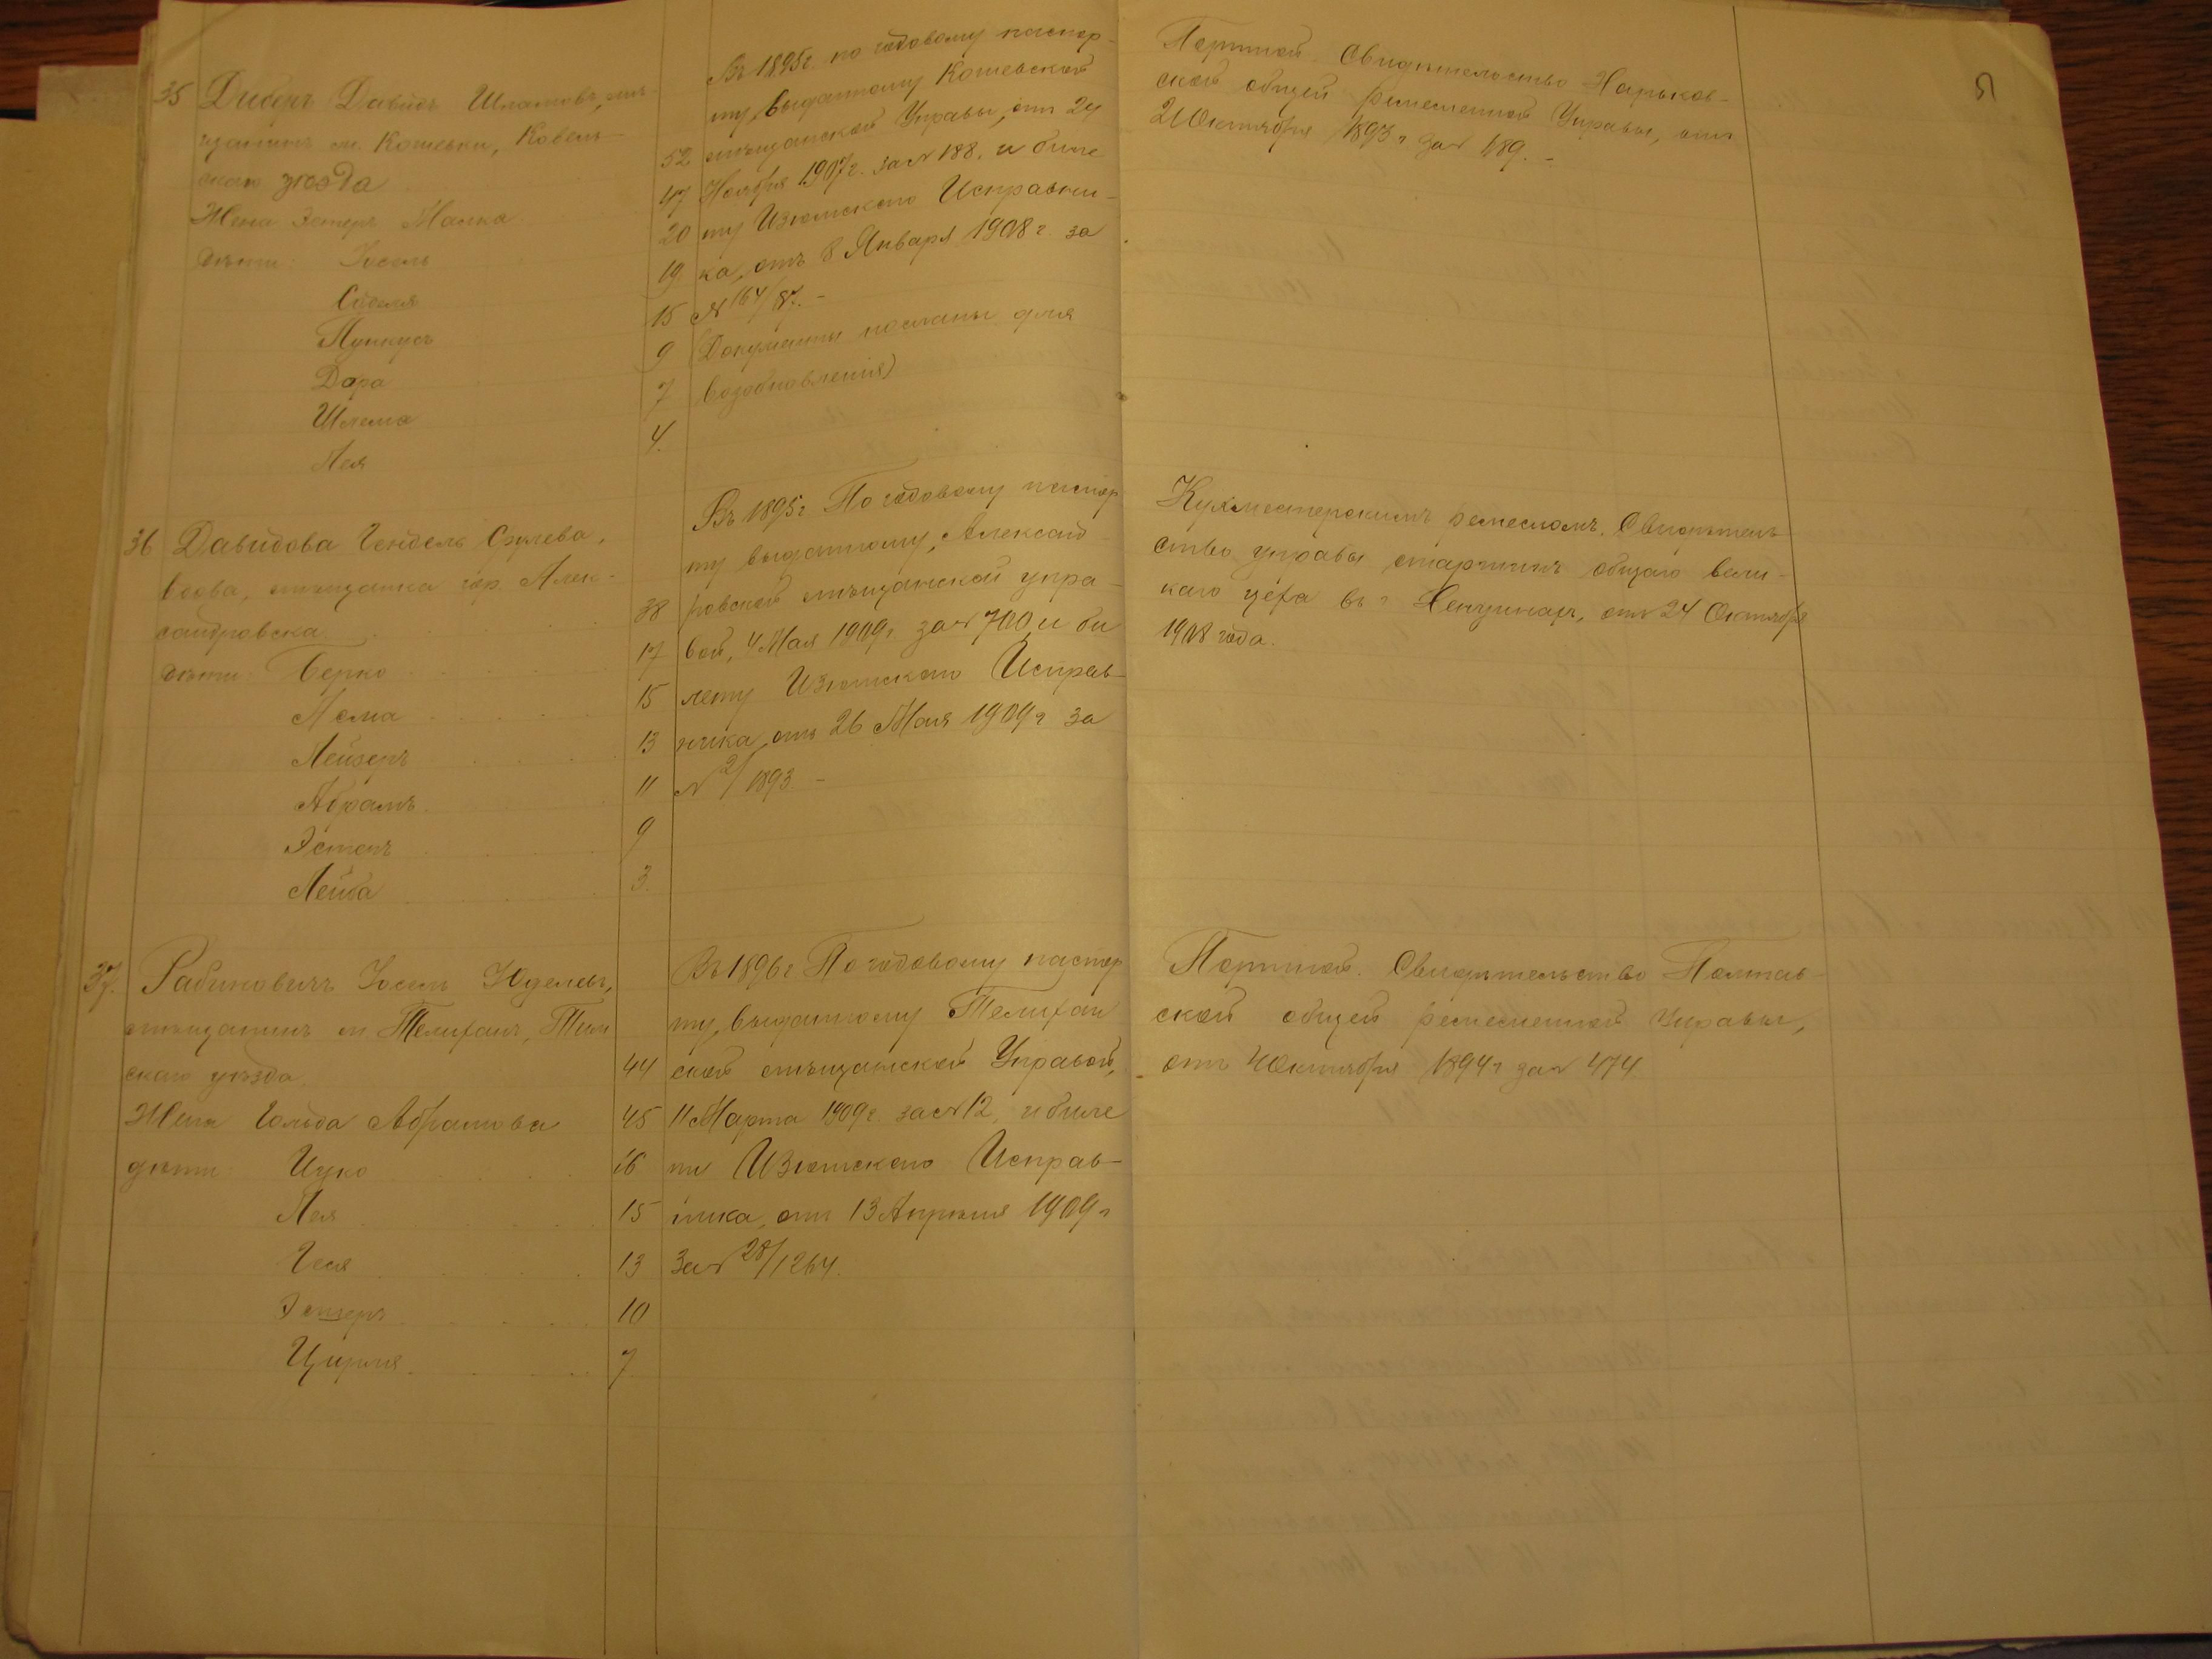 35 Диберъ Давидъ Шлатовъ, мѣ-
щанинъ м. Кошевки, Ковель-
скаго уѣзда 52
Жена Эстеръ Малка 47
дѣти: Іосель 20
19
Пункусъ 15
Дора 9
Шлема 7
Лея 4.
Въ 1895г. по годовому паспор-
ту, выданному Кошевской
мѣщанской Управы, отъ 24
Ноября 1907г. за № 188, и биле
ту Изюмскаго Исправни-
ка, отъ 8 Января 1908г. за
№ 164/87. -
(Документы посланы для
возобновленія)
Портной. Свидѣтельство Харьков-
ской общей ремесленной Управы, отъ
21 Октября 1893г. за № 489. -
36 Давидова Гендель Срулева,
вдова, мѣщанка гор. Алек-
сандровска 38
дѣти: Берко 17
15
Лейзеръ 13
Абрамъ. 11
Эстеръ 9
Лейба 3.
Въ 1895г По годовому паспор
ту выданному, Александ
ровской мѣщанской упра-
вой, 4 Мая 1909г. за № 700, и би
лету Изюмскаго Исправ-
ника, отъ 26 Мая 1909г за
№ 2/1893 -
Кухмистерскимъ ремесломъ. Свидѣтель
ство управы старшинъ общаго вели-
каго цеха въ г. отъ 24 Октября
1908 года.
37. Рабиновичъ Іосель Юделевъ,
мѣщанинъ м
скаго уѣзда 44
Жена Гольда Абрамова 45
дѣти: Ицко 16
Лея 15
Геся 13
Эстеръ 10
Цирля 7
Въ 1896г По годовому паспор
ту, выданному
ской мѣщанской Управой,
11 Марта 1909г. за № 12, и биле
ту Изюмскаго Исправ-
ника, отъ 13 Апрѣля 1909г
За № 28/1264.
Портной. Свидѣтельство Полтав-
ской общей ремесленной Управы,
отъ 4 Октября 1894г за № 474